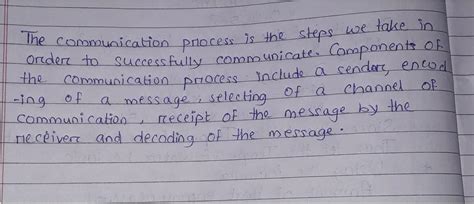 The communication process is the steps we take in
order to successfully communicate. Components of
the communication process include a sender, encod
-ing of a message, selecting of a channel of
communication, receipt of the message by the
receiver and decoding of the message.